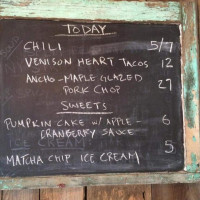 TODAY
CHILI 5/7
VENISON HEART TACOS 12
ANCHO-MAPLE GLAZED
PORK CHOP 27
SWEETS
PUMPKIN CAKE w/ APPLE-
CRANBERRY SAUCE 6
ICE CREAM
MATCHA CHIP ICE CREAM 5